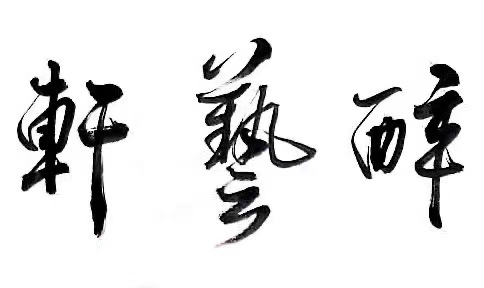 醉藝軒